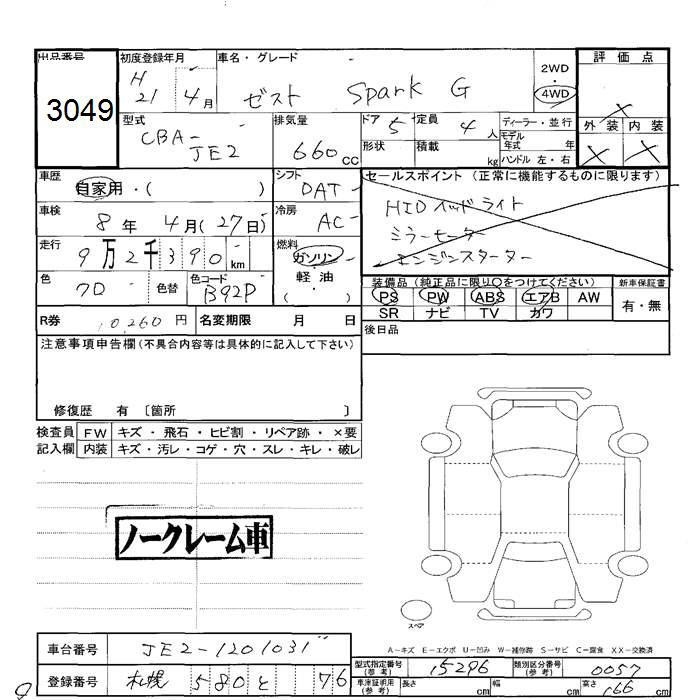 出品番号
3049
初度登録年月
H
21 4月
車名・グレード
ゼスト Spark G
2WD
・
4WD
評価点
×
外装 内装
× ×
型式
CBA-
JE2
排気量
660cc
ドア 5
形状
定員 4人
積載 kg
ディーラー・並行
モデル
年式 年
ハンドル 左・右
車歴
自家用・( )
シフト
DAT
セールスポイント (正常に機能するものに限ります)
HID ヘッドライト
ミラーヒーター
エンジンスターター
車検
8年 4月(27日)
冷房
AC
走行
9万2千390km
燃料
ガソリン
軽油
( )
色
色替
色コード
B92P
装備品 (純正品に限り○をつけてください)
PS PW ABS エアB AW
SR ナビ TV カワ
新車保証書
有・無
R券 10260円
名変期限 月 日
後日品
注意事項申告欄(不具合内容等は具体的に記入して下さい)
修復歴 有 〔箇所 〕
検査員
記入欄
FW キズ・飛石・ヒビ割・リペア跡・×要
内装 キズ・汚レ・コゲ・穴・スレ・キレ・破レ
ノークレーム車
スペア
A-キズ E-エクボ U-凹み W-補修跡 S-サビ C-腐食 XX-交換済
車台番号 JE2-1201031
登録番号 札幌 580 と 76
型式指定番号
(参考)
15296
類別区分番号
(参考)
0057
車庫証明用
(参考)
長さ cm
幅 cm
高さ 166 cm